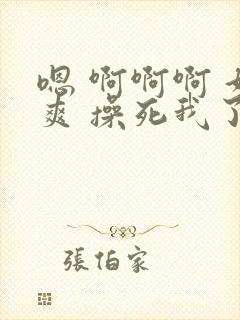 嗯 啊啊啊
爽 操死我了
張伯家